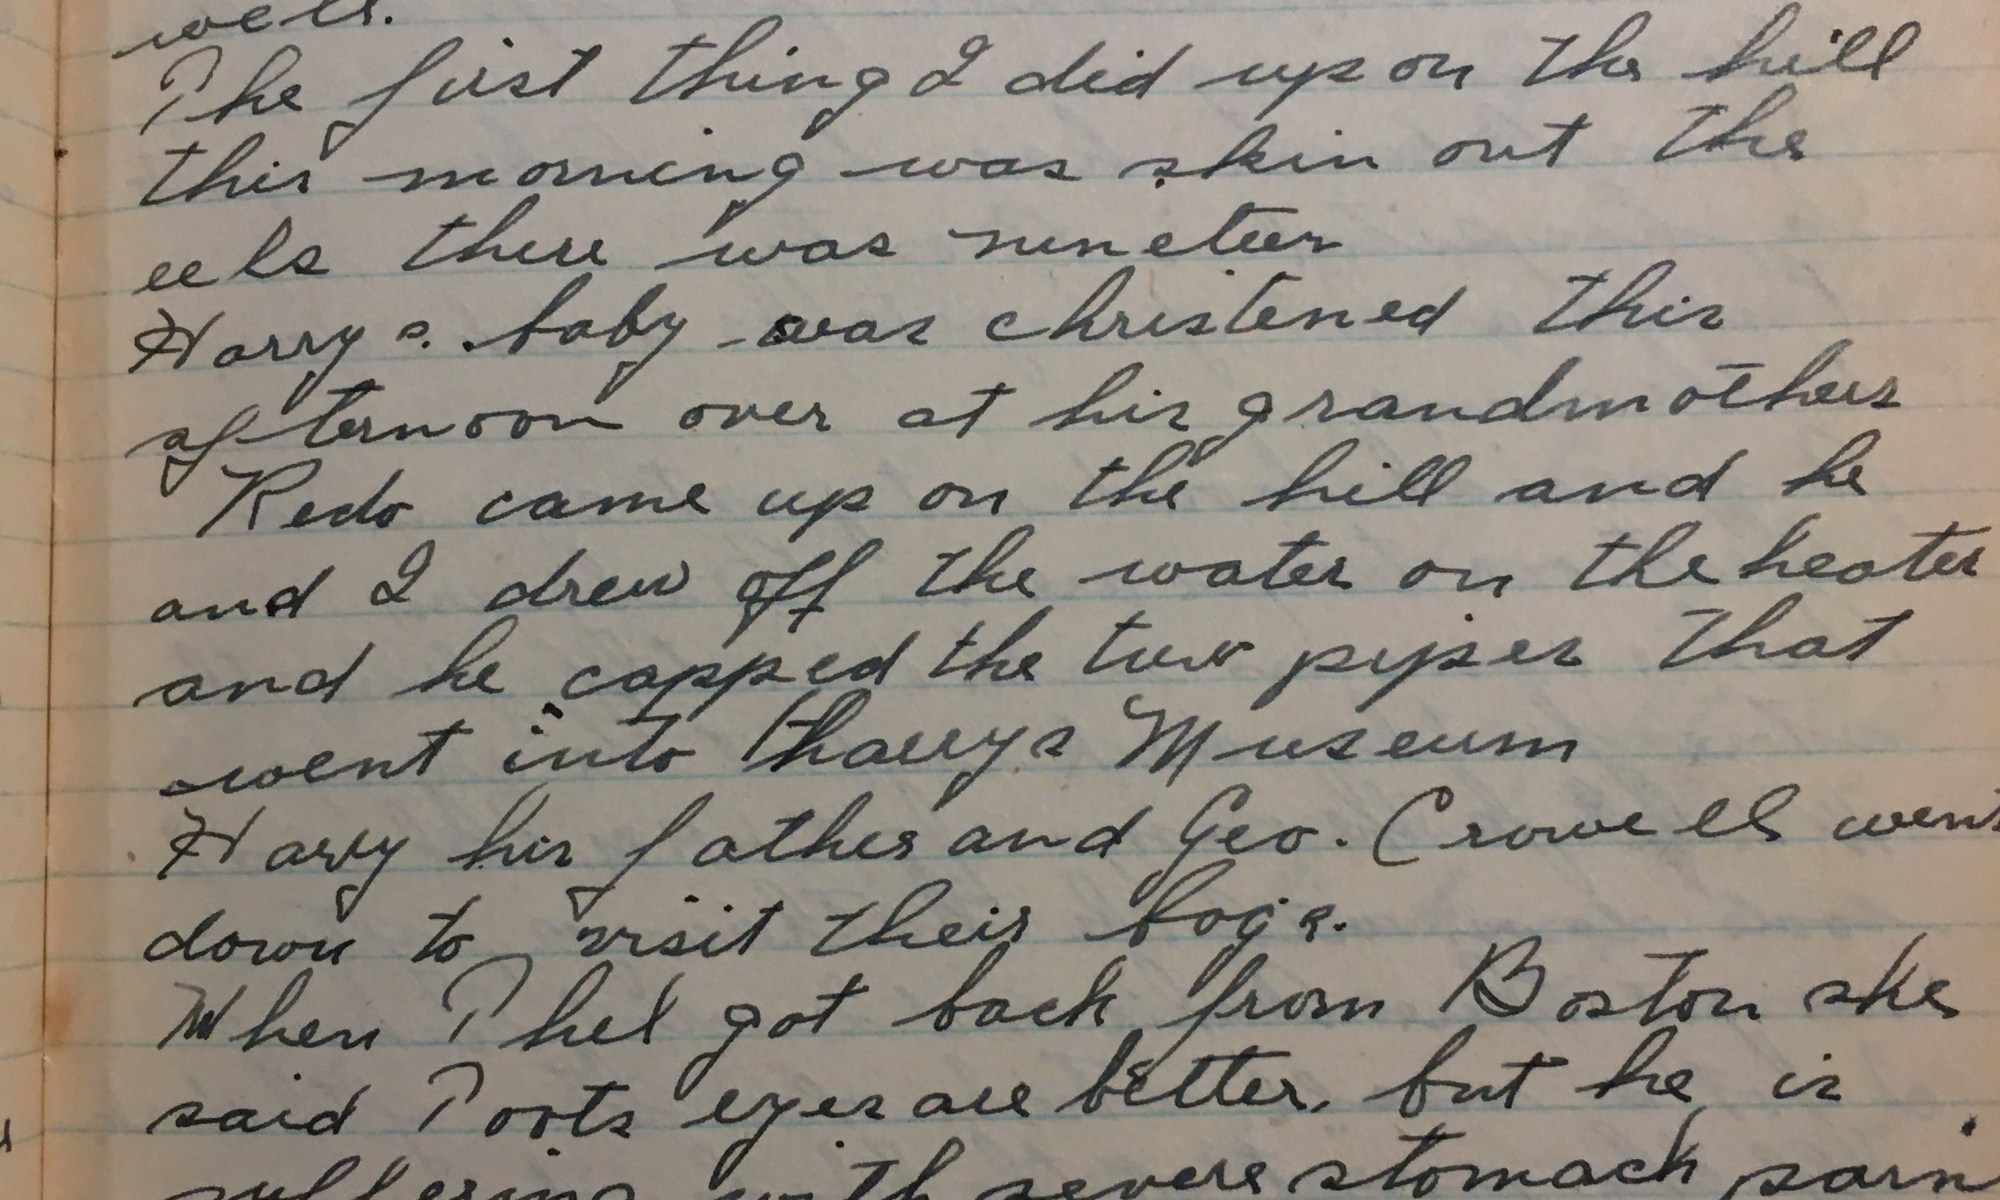 well.
The first thing I did up on the hill
this morning was skin out the
eels there was nineteen
Harrys. baby was christened this
afternoon over at his grandmothers
Redo came up on the hill and he
and I drew off the water on the heater
and he capped the two pipes that
went into Harrys Museum
Harry his father and Geo. Crowell went
down to visit their bogs.
When Thel got back from Boston she
said Toots eyes are better, but he is
suffering with severe stomach pain